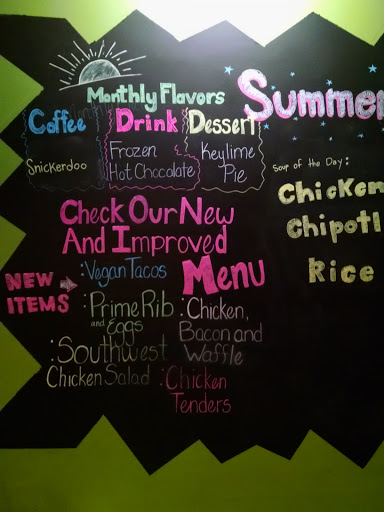 Monthly Flavors
Coffee
Snickerdoo
Drink
Frozen
Hot Chocolate
Dessert
Keylime
Pie
Summer
Soup of the Day:
Chicken
Chipotl
Rice
Check Our New
And Improved
Menu
NEW
ITEMS
:Vegan Tacos
:Prime Rib
and Eggs
:Southwest
Chicken Salad
:Chicken,
Bacon and
Waffle
:Chicken
Tenders